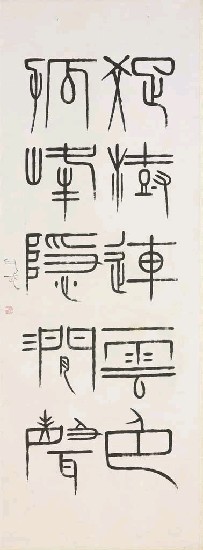 疏樹連雲色
孤峰隱澗聲